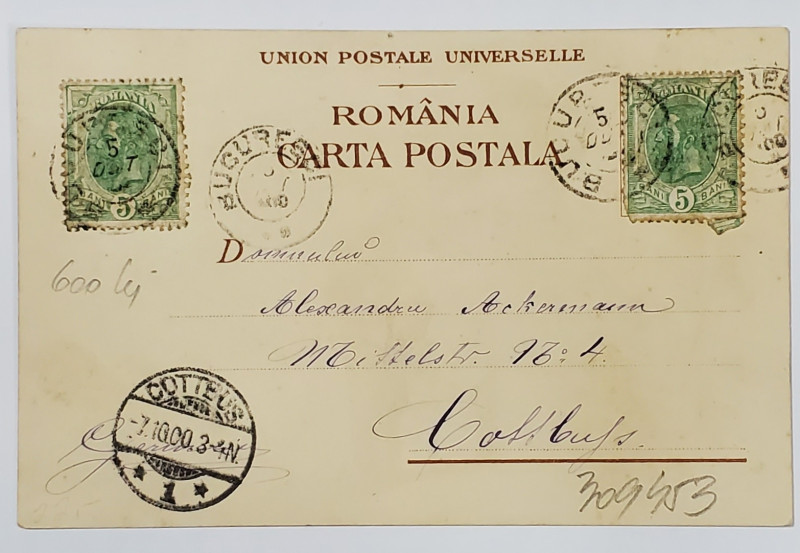 UNION POSTALE UNIVERSELLE
ROMÂNIA
CARTA POSTALA
ROMANIA
5
BANI 5 BANI
BUCURESCI
5
BUCURESCI
BUCUR
5
ROMANIA
BANI 5 BANI
600 lei
Domnului
Alexandru Ackermann
Mittelstr. No: 4.
Cottbuss.
COTTBUS
-7.10.00.3-4N.
* 1 *
Germania
309453